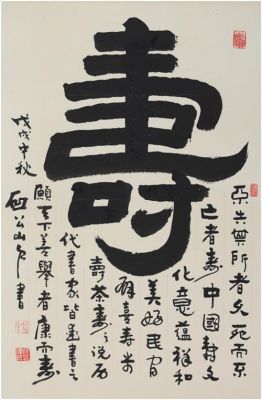 壽
不失其所者久死而不
亡者壽中國壽文
化意蘊祥和
美好民間
有喜壽米
壽茶壽之說歷
代書家皆書之
願天下善舉者康而壽
戊戌中秋
山 書